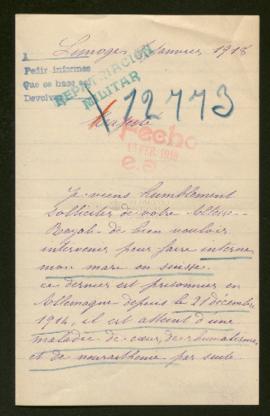 Limoges Janvier 1918
Pedir informes
Que se hace
Devolver
REPATRIACIÓN
MILITAR
12773
Majesté
Fecho
13 FEB. 1918
Je viens humblement
solliciter de votre Altesse
Royale de bien vouloir
intervenir pour faire interner
mon mari en suisse.
ce dernier est prisonnier en
Allemagne depuis le 21 décembre
1914, il est atteint d'une
maladie de cœur, de rhumatisme,
et de neurasthénie par suite